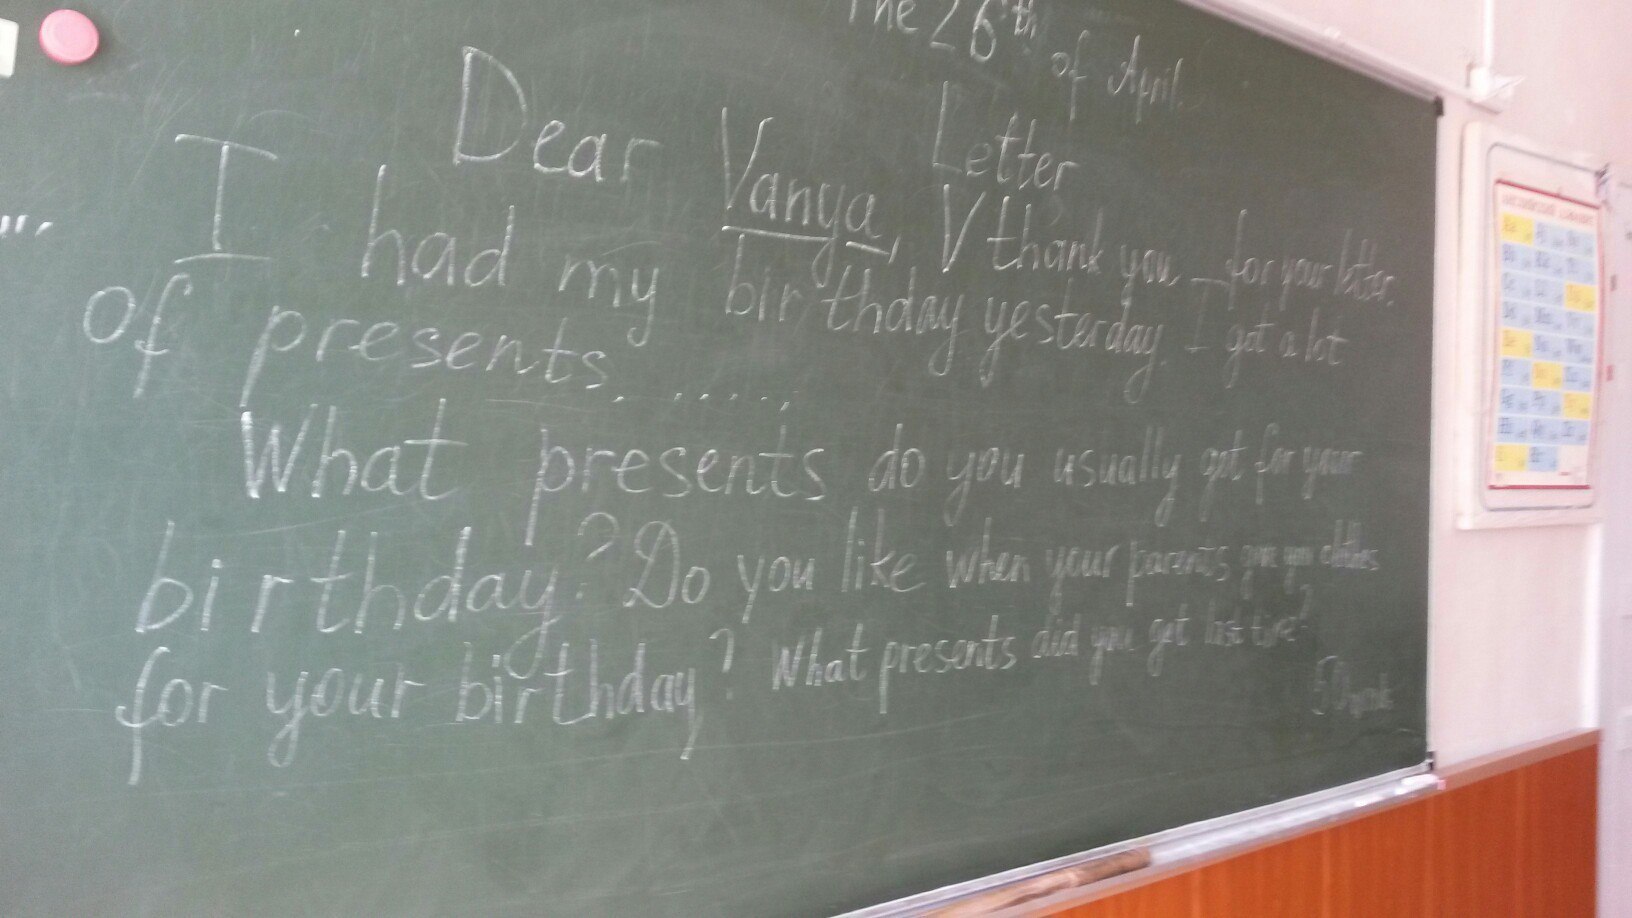 The 26th of April.
Letter
Dear Vanya, V thank you for your letter.
I had my birthday yesterday. I got a lot
of presents. .....
What presents do you usually get for your
birthday? Do you like when your parents give you clothes
for your birthday? What presents did you get last time?
50 words